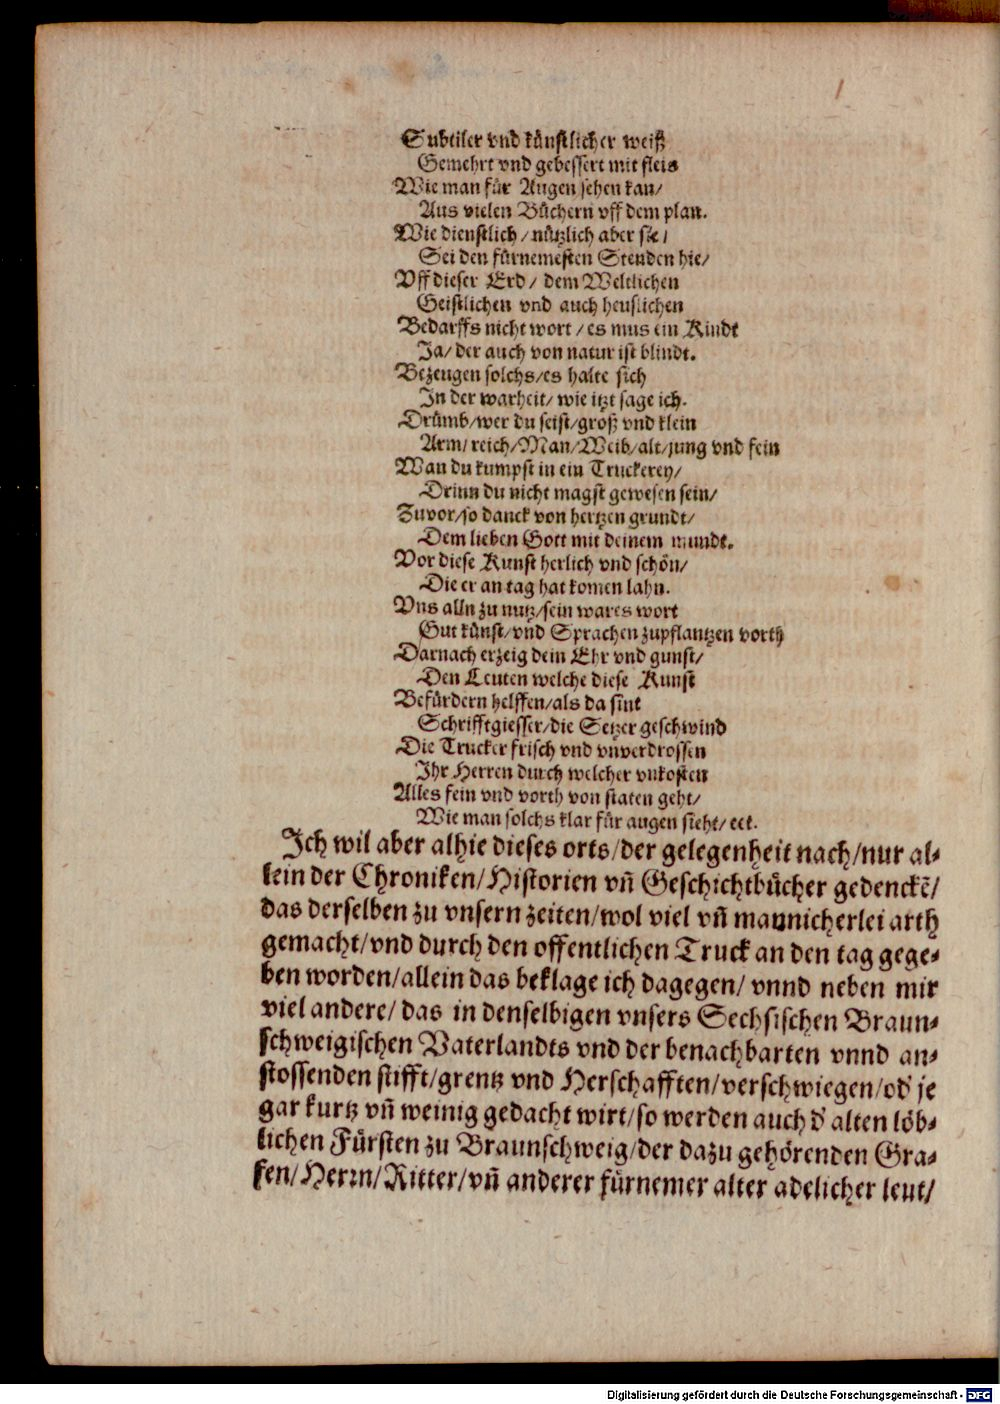 Subtiler vnd künstlicher weiß
Gemehrt vnd gebessert mit fleis
Wie man für Augen sehen kan/
Aus vielen Büchern vff dem plan.
Wie dienstlich/nützlich aber sie/
Sei den fürnemesten Stenden hie/
Vff dieser Erd/ dem Weltlichen
Geistlichen vnd auch heuslichen
Bedarffs nicht wort/es mus ein Kindt
Ja/ der auch von natur ist blindt.
Bezeugen solchs/es halte sich
In der warheit/ wie itzt sage ich.
Drümb/wer du seist/groß vnd klein
Arm/reich/Man/Weib/alt/jung vnd fein
Wan du kumpst in ein Truckerey/
Drinn du nicht magst gewesen sein/
Zuvor/so danck von hertzen grundt/
Dem lieben Gott mit deinem mundt.
Vor diese Kunst herlich vnd schön/
Die er an tag hat komen lahn.
Vns alln zu nutz/sein wares wort
Gut künst/vnd Sprachen zupflantzen vorth
Darnach erzeig dein Ehr vnd gunst/
Den Leuten welche diese Kunst
Befürdern helffen/als da sint
Schrifftgiesser/die Setzer geschwind
Die Trucker frisch vnd vnverdrossen
Ihr Herren durch welcher vnkosten
Alles fein vnd vorth von staten geht/
Wie man solchs klar für augen sieht/ ect.
Ich wil aber alhie dieses orts/der gelegenheit nach/nur al-
lein der Chroniken/Historien vñ Geschichtbücher gedenckẽ/
das derselben zu vnsern zeiten/wol viel vñ mannicherlei arth
gemacht/vnd durch den offentlichen Truck an den tag gege-
ben worden/allein das beklage ich dagegen/ vnnd neben mir
viel andere/ das in denselbigen vnsers Sechsischen Braun-
schweigischen Vaterlandts vnd der benachbarten vnnd an-
stossenden stifft/grentz vnd Herschafften/verschwiegen/od' je
gar kurtz vñ weinig gedacht wirt/so werden auch d' alten löb-
lichen Fürsten zu Braunschweig/der dazu gehörenden Gra-
fen/Herrn/Ritter/vñ anderer fürnemer alter adelicher leut/
Digitalisierung gefördert durch die Deutsche Forschungsgemeinschaft - DFG